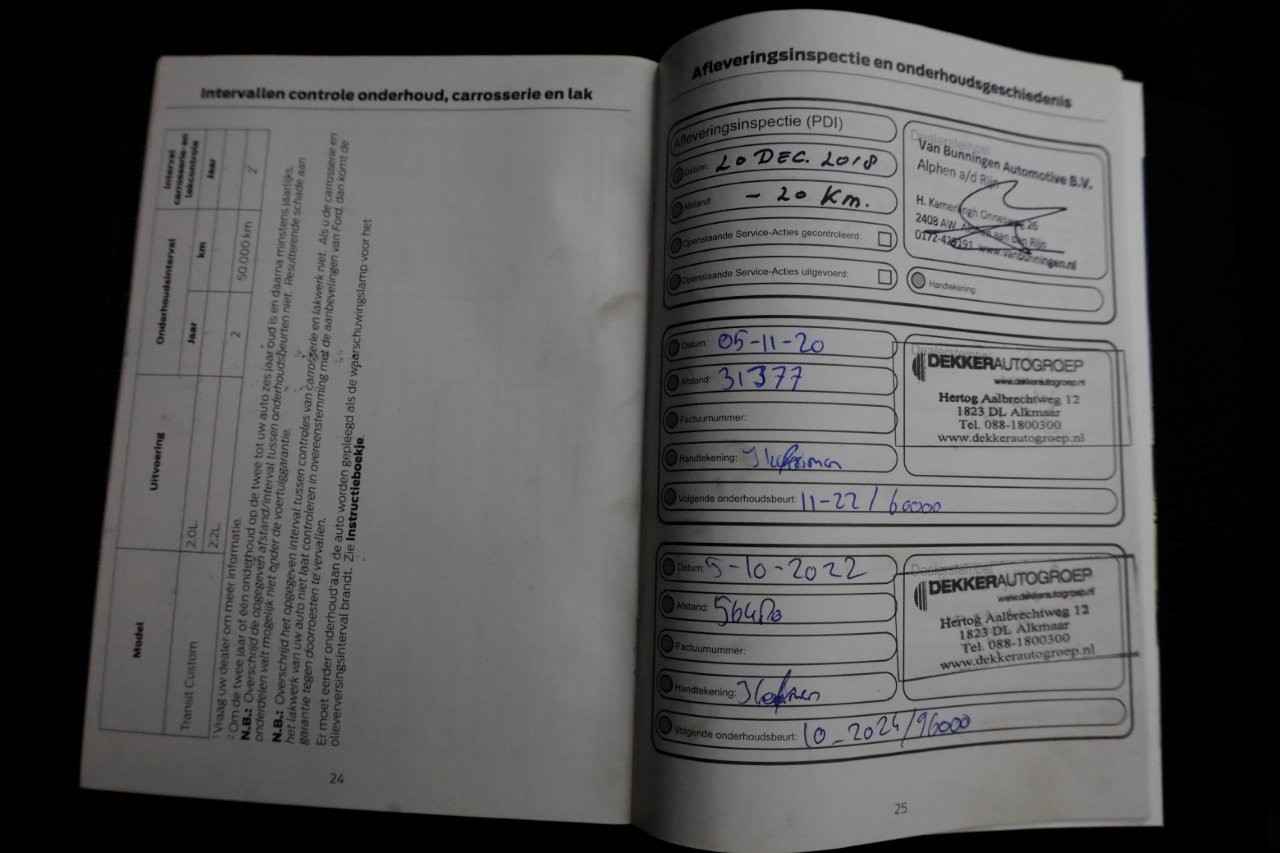 Intervallen controle onderhoud, carrosserie en lak
Model
Uitvoering
Onderhoudsinterval
Interval carrosserie- en lakcontrole
Jaar
km
Jaar
Transit Custom
2.0L
2
50.000 km
2
2.2L
¹ Vraag uw dealer om meer informatie.
² Om de twee jaar of één onderhoud op de twee tot uw auto zes jaar oud is en daarna minstens jaarlijks.
N.B.: Overschrijd de opgegeven afstand/interval tussen onderhoudsbeurten niet. Resulterende schade aan
onderdelen valt mogelijk niet onder de voertuiggarantie.
N.B.: Overschrijd het opgegeven interval tussen controles van carrosserie en lakwerk niet. Als u de carrosserie en
het lakwerk van uw auto niet laat controleren in overeenstemming met de aanbevelingen van Ford, dan komt de
garantie tegen doorroesten te vervallen.
Er moet eerder onderhoud aan de auto worden gepleegd als de waarschuwingslamp voor het
olieverversingsinterval brandt. Zie Instructieboekje.
24
Afleveringsinspectie en onderhoudsgeschiedenis
Afleveringsinspectie (PDI)
Datum: 20 DEC. 2018
Afstand: - 20 Km.
Openstaande Service-Acties gecontroleerd:
Openstaande Service-Acties uitgevoerd:
Dealerstempel
Van Bunningen Automotive B.V.
Alphen a/d Rijn
H. Kamerlingh Onnesweg 26
2408 AW Alphen aan den Rijn
www.vanbunningen.nl
Handtekening:
Datum: 05-11-20
Afstand: 31377
Factuurnummer:
Handtekening:
Volgende onderhoudsbeurt: 11-22 / 60000
DEKKERAUTOGROEP
www.dekkerautogroep.nl
Hertog Aalbrechtweg 12
1823 DL Alkmaar
Tel. 088-1800300
www.dekkerautogroep.nl
Datum: 5-10-2022
Afstand:
Factuurnummer:
Handtekening:
Volgende onderhoudsbeurt: 10-2024/96000
Dealerstempel
DEKKERAUTOGROEP
www.dekkerautogroep.nl
Hertog Aalbrechtweg 12
1823 DL Alkmaar
Tel. 088-1800300
www.dekkerautogroep.nl
25